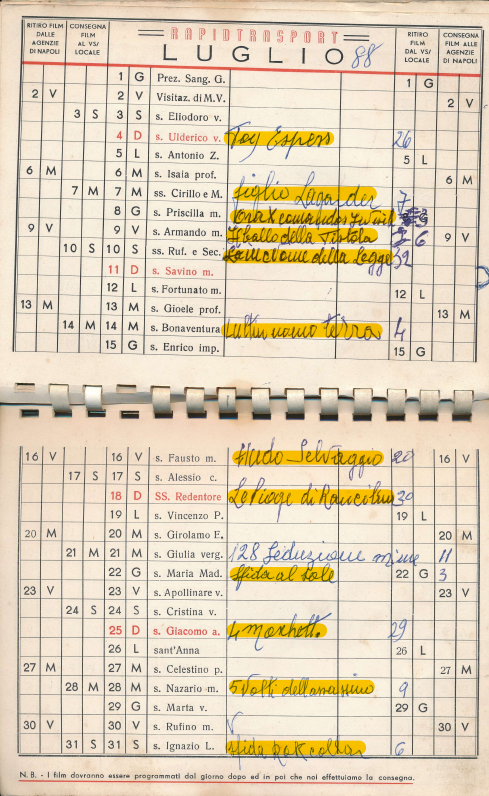 RITIRO FILM DALLE AGENZIE DI NAPOLI
CONSEGNA FILM AL VS/ LOCALE
RAPIDTRASPORT
LUGLIO 88
RITIRO FILM DAL VS/ LOCALE
CONSEGNA FILM ALLE AGENZIE DI NAPOLI
1 G Prez. Sang. G. 1 G
2 V 2 V Visitaz. di M.V. 2 V
3 S 3 S s. Eliodoro v.
4 D s. Ulderico v. 26
5 L s. Antonio Z. 5 L
6 M 6 M s. Isaia prof. 6 M
7 M 7 M ss. Cirillo e M. figlio Lagarder 7
8 G s. Priscilla m.
9 V 9 V s. Armando m. 6 9 V
10 S 10 S ss. Ruf. e Sec. della Legge 32
11 D s. Savino m.
12 L s. Fortunato m. 12 L
13 M 13 M s. Gioele prof. 13 M
14 M 14 M s. Bonaventura terra 4
15 G s. Enrico imp. 15 G
16 V 16 V s. Fausto m. Nudo Selvaggio 20 16 V
17 S 17 S s. Alessio c.
18 D SS. Redentore Le Piogge di 30
19 L s. Vincenzo P. 19 L
20 M 20 M s. Girolamo E. 20 M
21 M 21 M s. Giulia verg. 128 Seduzione 11
22 G s. Maria Mad. Sfida al sole 22 G 3
23 V 23 V s. Apollinare v. 23 V
24 S 24 S s. Cristina v.
25 D s. Giacomo a. 4 29
26 L sant'Anna 26 L
27 M 27 M s. Celestino p. 27 M
28 M 28 M s. Nazario m. 5 Volti dell'assassino 9
29 G s. Marta v. 29 G
30 V 30 V s. Rufino m. 30 V
31 S 31 S s. Ignazio L. sfida 6
N. B. - I film dovranno essere programmati dal giorno dopo ed in poi che noi effettuiamo la consegna.